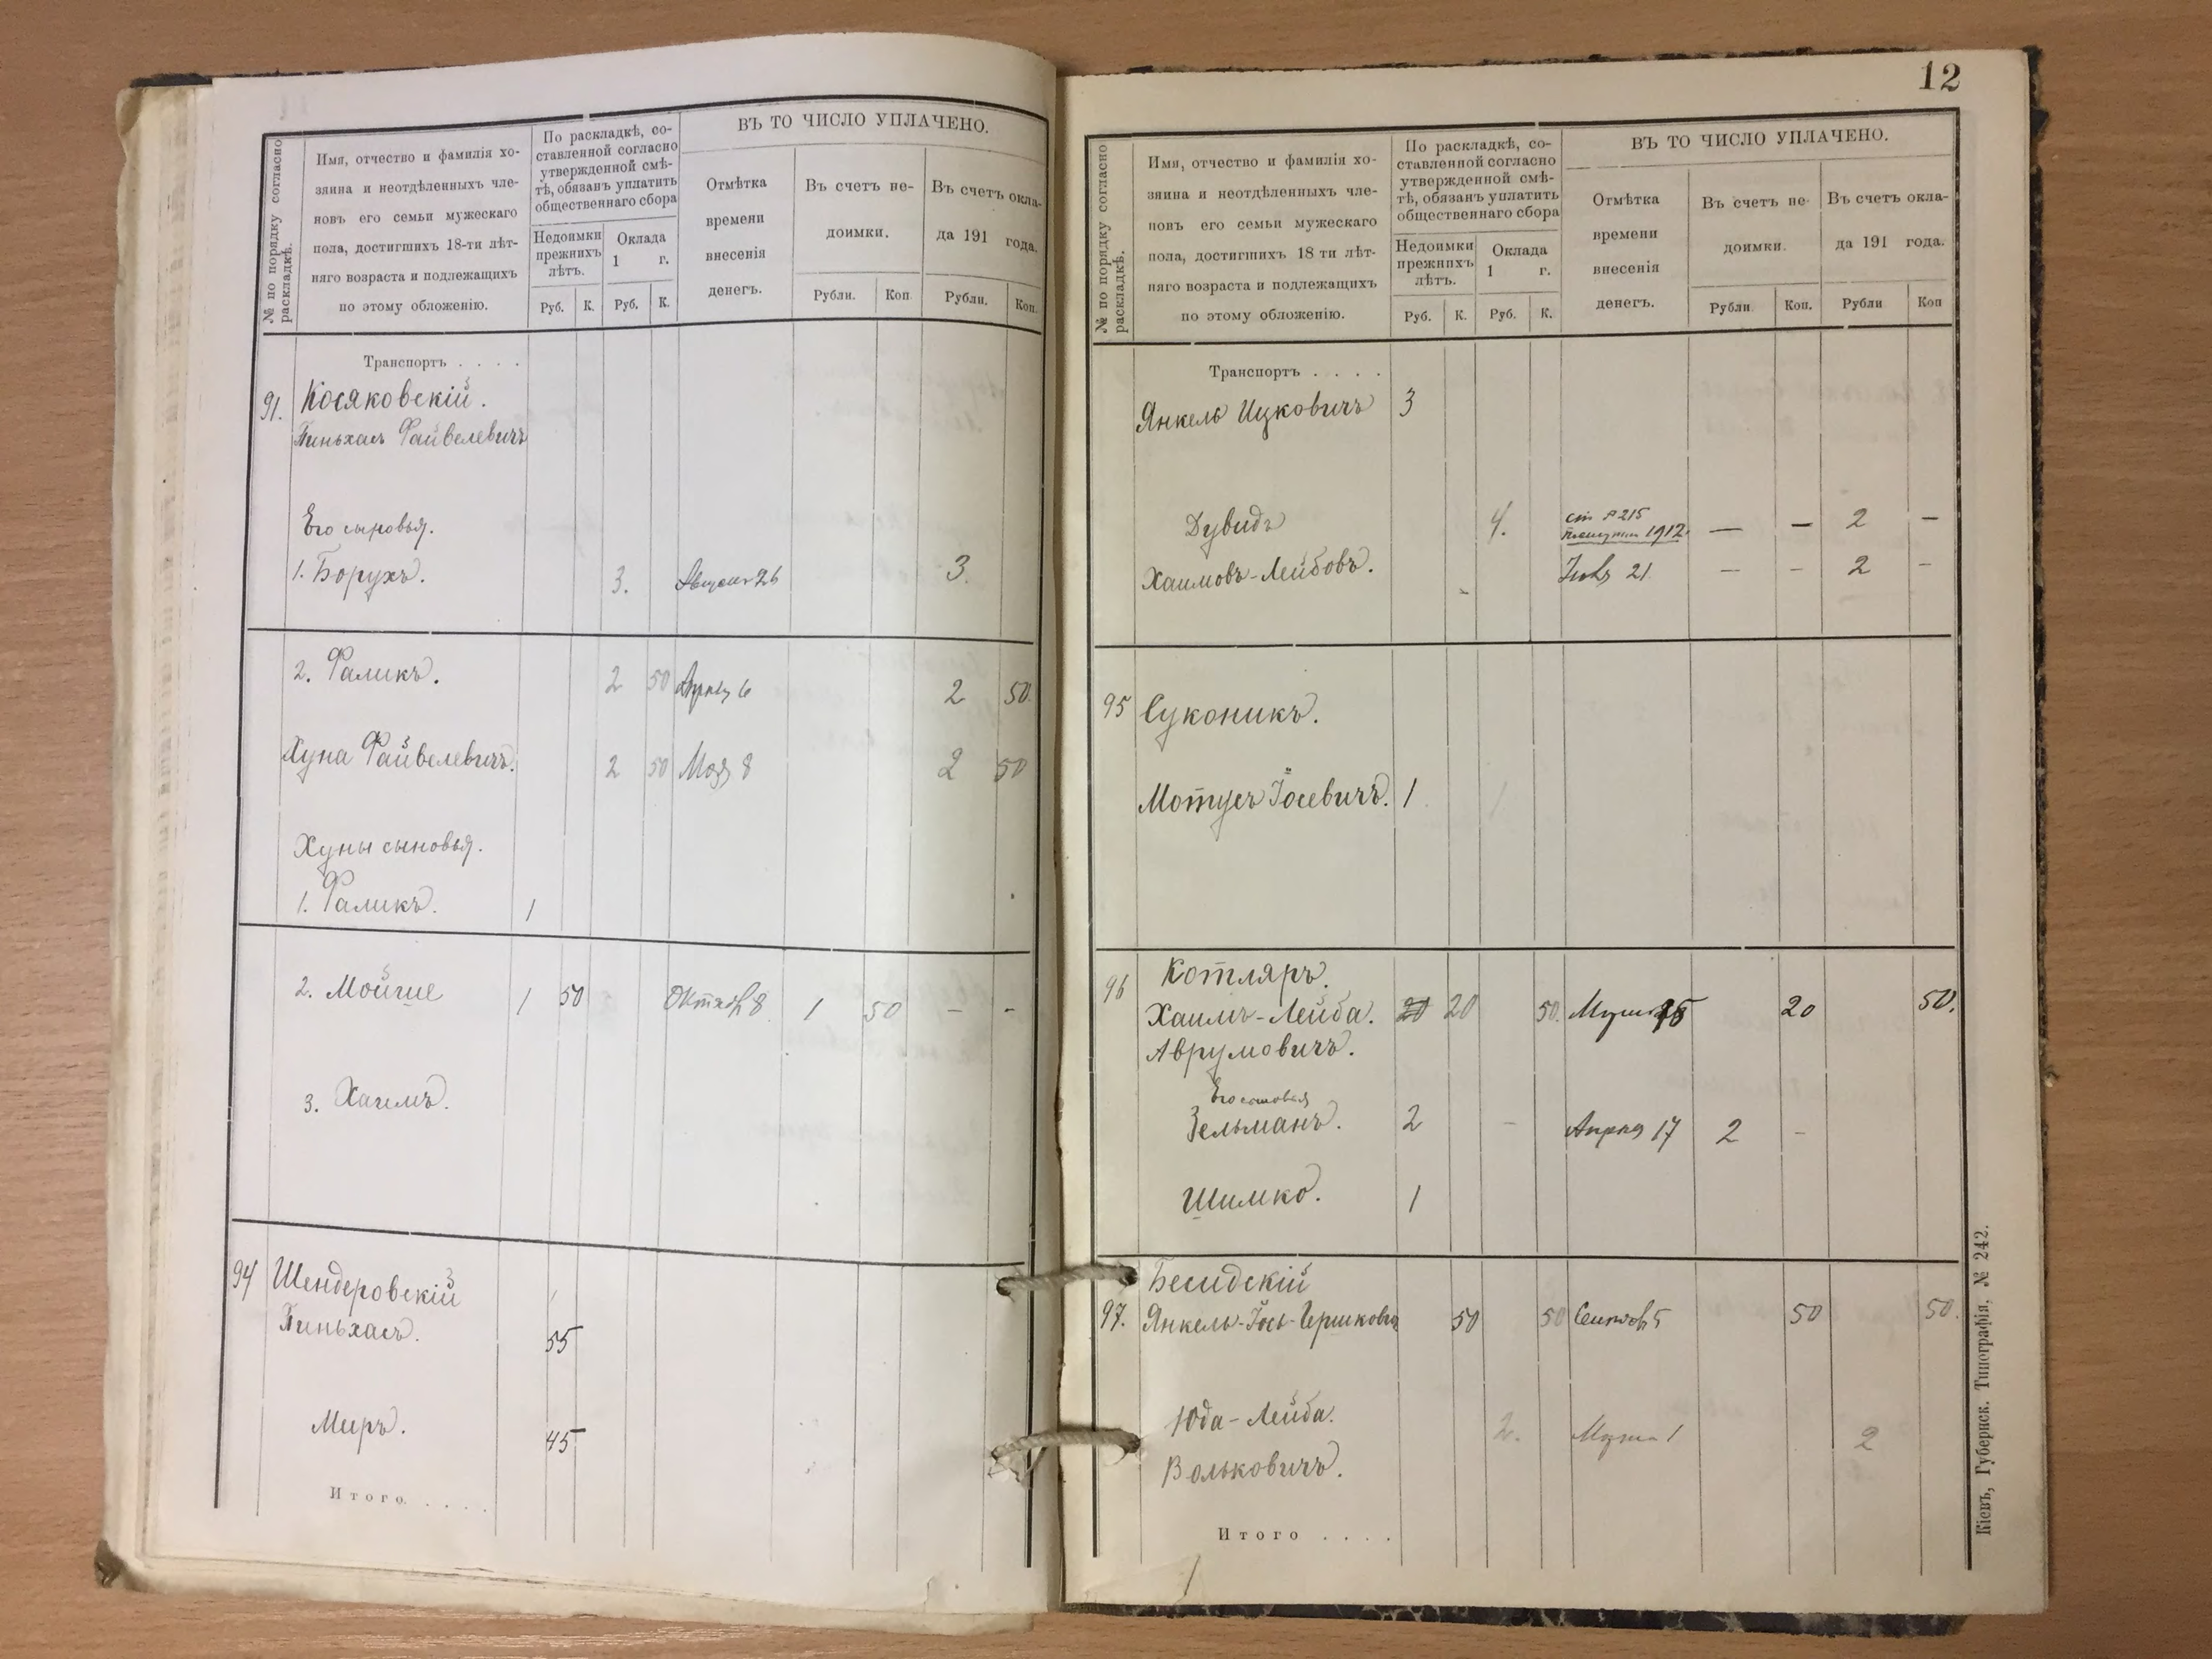 № по порядку согласно
раскладкѣ.
Имя, отчество и фамилія хо-
зяина и неотдѣленныхъ чле-
новъ его семьи мужескаго
пола, достигшихъ 18-ти лѣт-
няго возраста и подлежащихъ
по этому обложенію.
По раскладкѣ, со-
ставленной согласно
утвержденной смѣ-
тѣ, обязанъ уплатить
общественнаго сбора
Недоимки
прежнихъ
лѣтъ.
Оклада
1 г.
Руб. К. Руб. К.
ВЪ ТО ЧИСЛО УПЛАЧЕНО.
Отмѣтка
времени
внесенія
денегъ.
Въ счетъ не-
доимки.
Рубли. Коп.
Въ счетъ окла-
да 191 года.
Рубли. Коп.
Транспортъ . . . .
91. Косяковскій.
Пиньхасъ Файвелевичъ
Его сыновья.
1. Борухъ. 3. Августа 26 3.
2. Фаликъ. 2 50 Апрѣля 6 2 50.
Хуна Файвелевичъ. 2 50 Мая 8 2 50
Хуны сыновья.
1. Фаликъ. 1
2. Мойше 1 50 Октяб 8 1 50 – –
3. Хаимъ.
94 Шендеровскій
Пиньхасъ. 55
Меръ. 45
Итого . . . .
12
№ по порядку согласно
раскладкѣ.
Имя, отчество и фамилія хо-
зяина и неотдѣленныхъ чле-
новъ его семьи мужескаго
пола, достигшихъ 18 ти лѣт-
няго возраста и подлежащихъ
по этому обложенію.
По раскладкѣ, со-
ставленной согласно
утвержденной смѣ-
тѣ, обязанъ уплатить
общественнаго сбора
Недоимки
прежнихъ
лѣтъ.
Оклада
1 г.
Руб. К. Руб. К.
ВЪ ТО ЧИСЛО УПЛАЧЕНО.
Отмѣтка
времени
внесенія
денегъ.
Въ счетъ не-
доимки.
Рубли. Коп.
Въ счетъ окла-
да 191 года.
Рубли Коп
Транспортъ . . . .
Янкель Ицковичъ 3
Дувидъ 4. 215 1912. — — 2 —
Хаимовъ-Лейбовъ. 21 – – 2 –
95 Суконикъ.
Мотусъ Іосевичъ. 1
96 Котляръ.
Хаимъ-Лейба. 20 20 50. 20 50.
Аврумовичъ.
Его сыновья
Зельманъ. 2 – Апрѣля 17 2 –
Шимко. 1
Бесидскій
97. Янкель-Іось-Гершкович 50 50 Сентяб 5 50 50.
Юда-Лейба. 2. Марта 1 2
Вольковичъ.
Итого . . . .
Кіевъ, Губернск. Типографія, № 242.